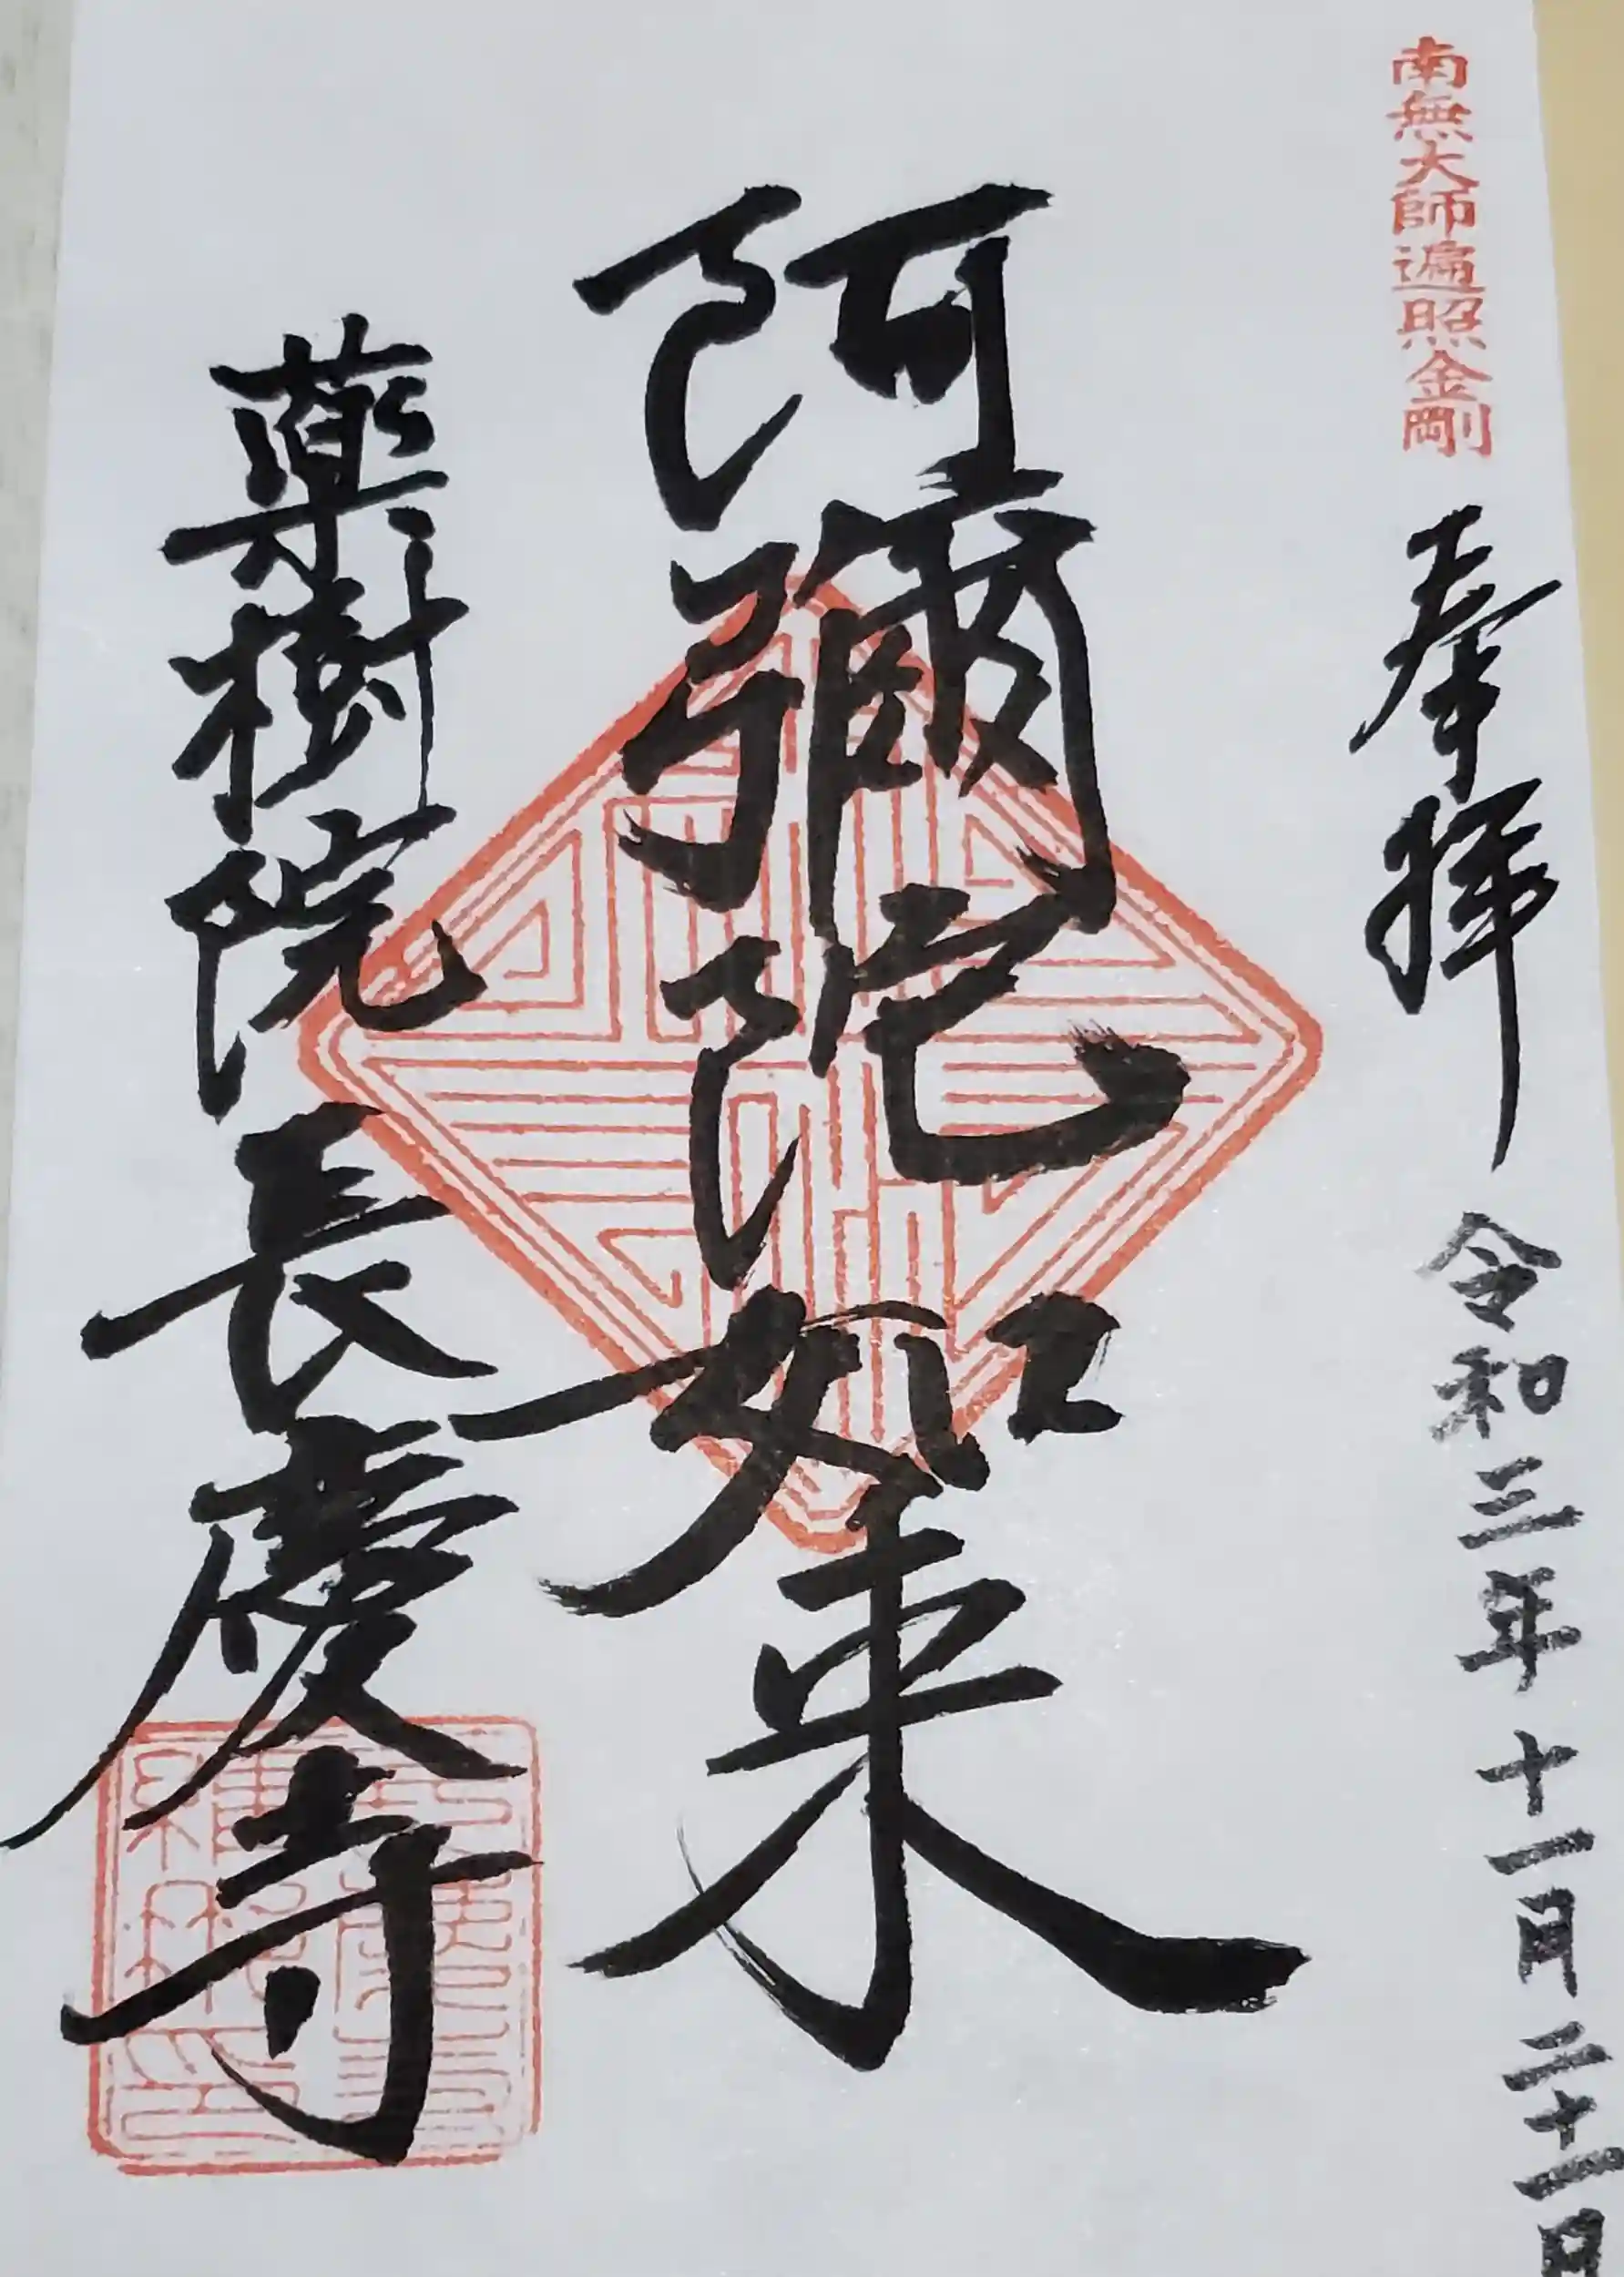 南無大師遍照金剛
奉拝 令和三年十一月二十一日
阿彌陀如来
薬樹院長慶寺